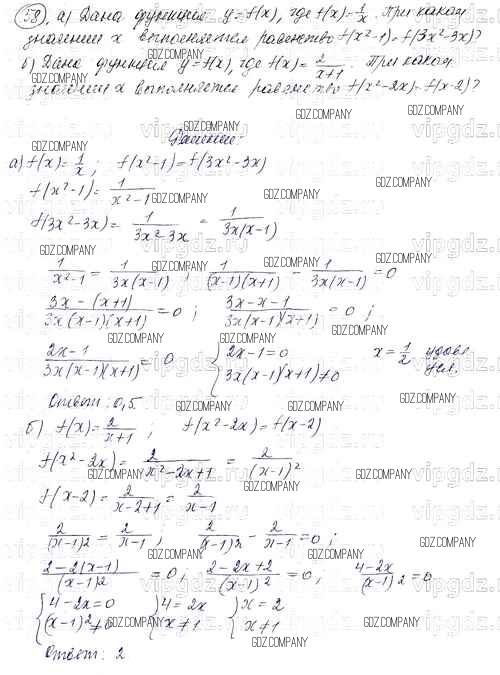 58. а) Дана функция y=f(x), где f(x)=1/x. При каком
значении x выполняется равенство f(x²-1)=f(3x²-3x)?
б) Дана функция y=f(x), где f(x)=2/(x+1). При каком
значении x выполняется равенство f(x²-2x)=f(x-2)?
Решение:
а) f(x)=1/x; f(x²-1)=f(3x²-3x)
f(x²-1)=1/(x²-1)
f(3x²-3x)=1/(3x²-3x)=1/(3x(x-1))
1/(x²-1)=1/(3x(x-1)); 1/((x-1)(x+1))-1/(3x(x-1))=0
(3x-(x+1))/(3x(x-1)(x+1))=0; (3x-x-1)/(3x(x-1)(x+1))=0;
(2x-1)/(3x(x-1)(x+1))=0 {2x-1=0 3x(x-1)(x+1)≠0 x=1/2 удовл.
Ответ: 0,5.
б) f(x)=2/(x+1); f(x²-2x)=f(x-2)
f(x²-2x)=2/(x²-2x+1)=2/(x-1)²
f(x-2)=2/(x-2+1)=2/(x-1)
2/(x-1)²=2/(x-1); 2/(x-1)²-2/(x-1)=0;
(2-2(x-1))/(x-1)²=0; (2-2x+2)/(x-1)²=0; (4-2x)/(x-1)²=0
{4-2x=0 (x-1)²≠0 {4=2x x≠1 {x=2 x≠1
Ответ: 2
GDZ.COMPANY
vipgdz.ru